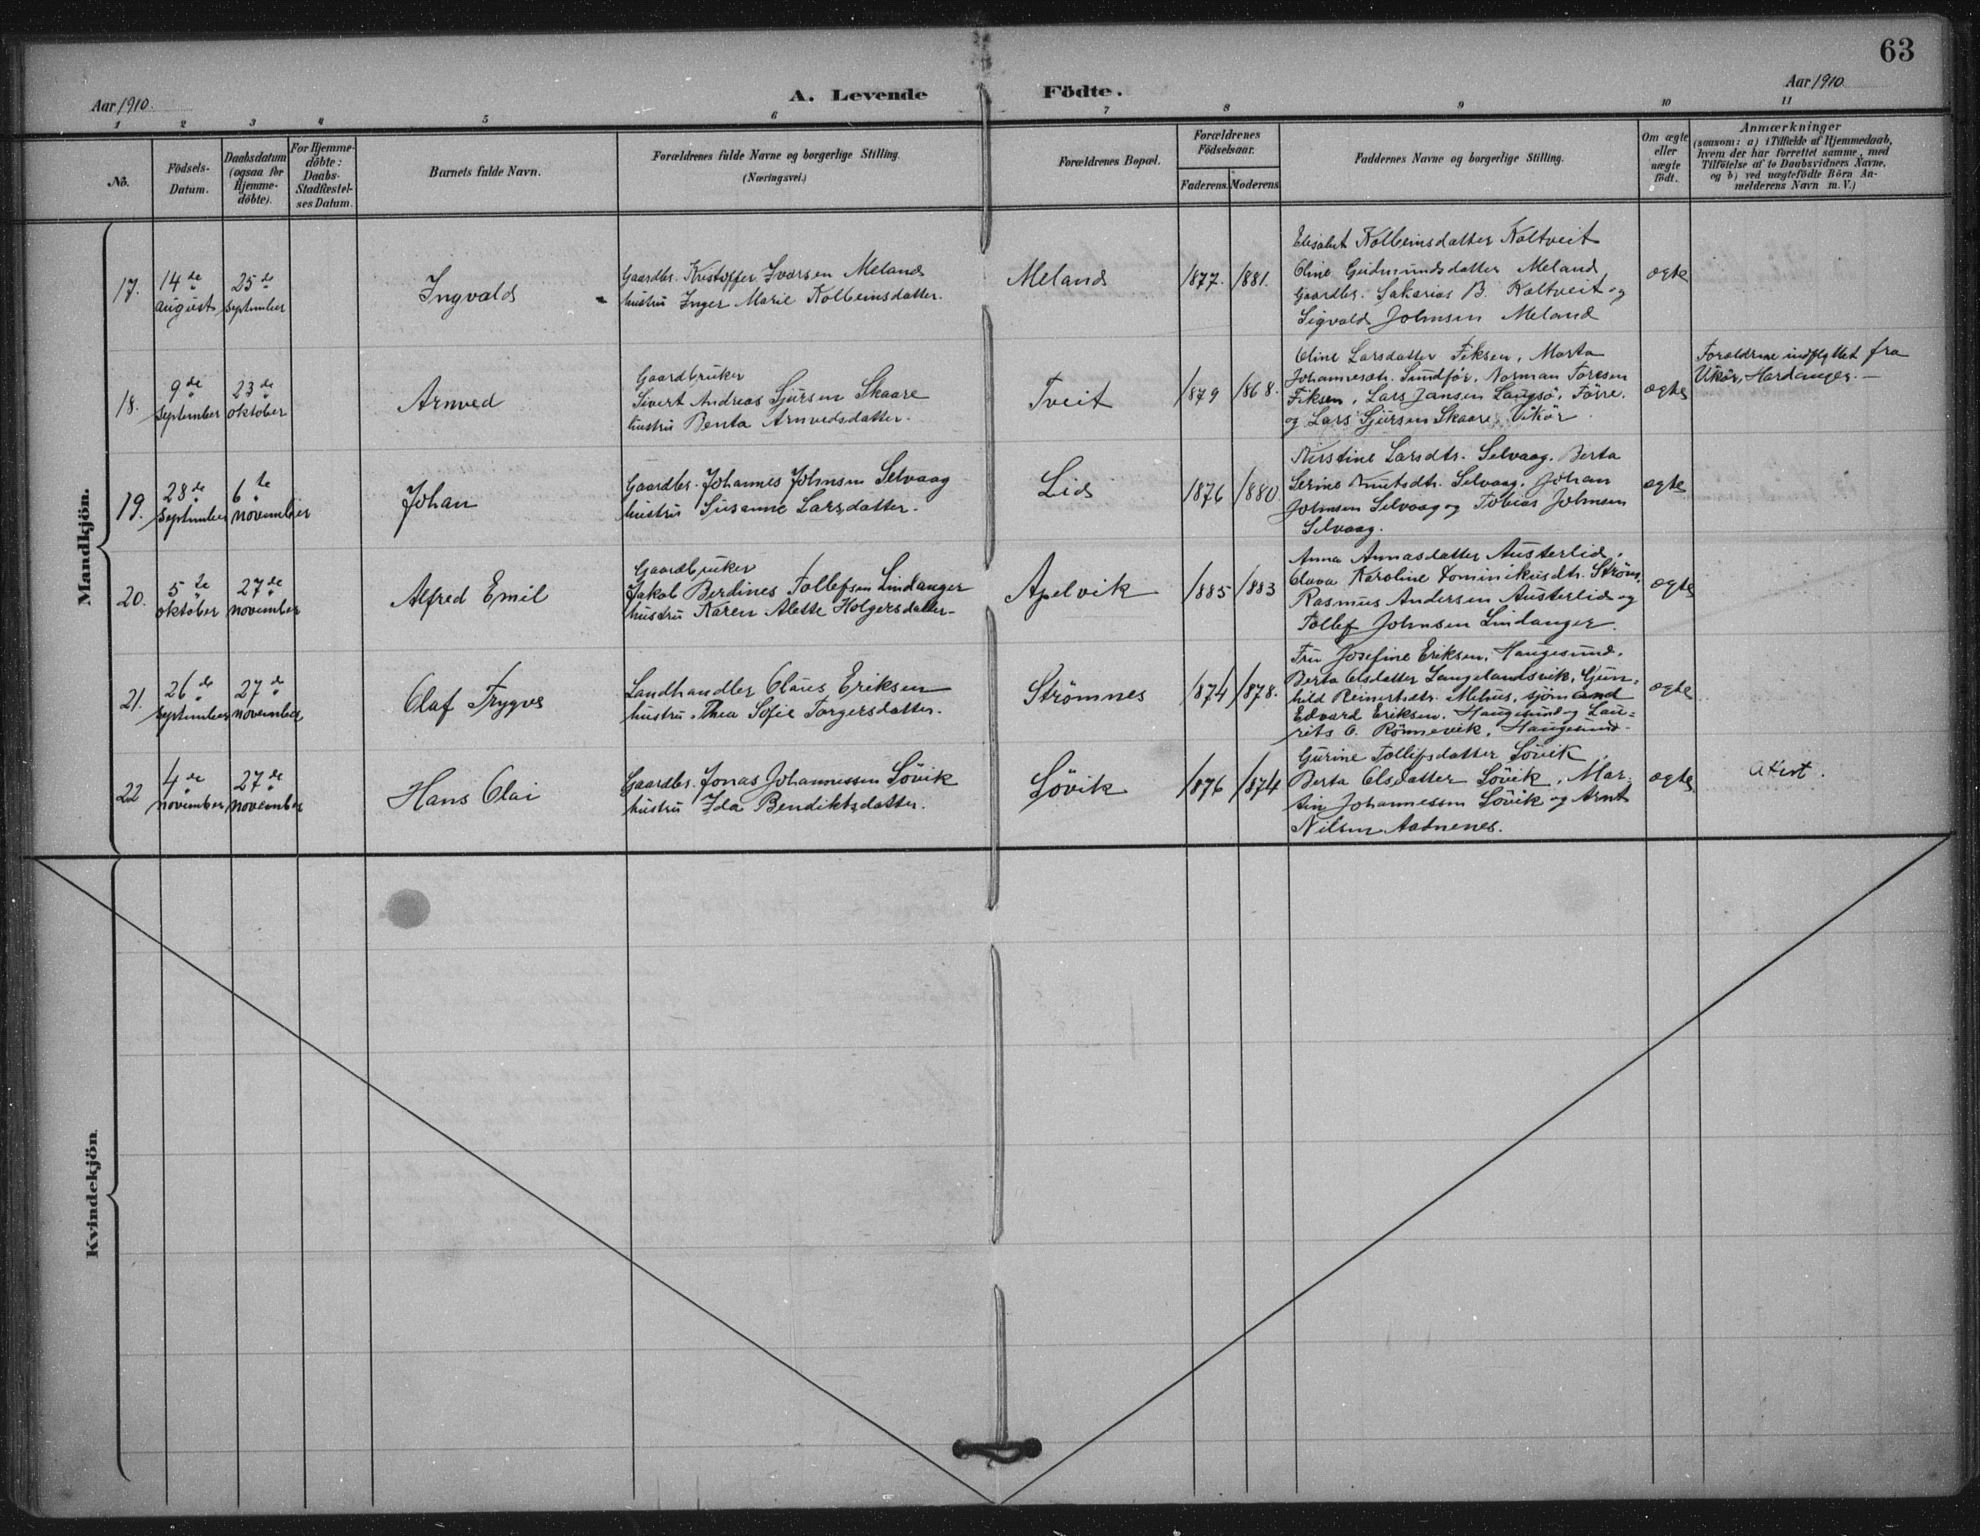 63
Aar 1910.
A. Levende Födte.
Aar 1910
1 2 3 4 5 6 7 8 9 10 11
No.
Födsels-
Datum.
Daabsdatum
(ogsaa for
Hjemme-
döbte).
For Hjemme-
döbte:
Daabs-
Stadfæstel-
ses Datum.
Barnets fulde Navn.
Forældrenes fulde Navne og borgerlige Stilling.
(Næringsvei.)
Forældrenes Bopæl.
Forældrenes
Födselsaar.
Faderens. Moderens.
Faddernes Navne og borgerlige Stilling.
Om ægte
eller
uægte
födt.
Anmærkninger
(saasom: a) i Tilfælde af Hjemmedaab,
hvem der har forrettet samme, med
Tilföielse af to Daabsvidners Navne,
og b) ved uægtefödte Börn An-
melderens Navn m. V.)
Mandkjön.
17.
14de
august
25de
september
Ingvald
Gaardbr. Kristoffer Ivarsen Meland
hustru Inger Marie Kolbeinsdatter.
Meland
1877. 1881.
Elisabet Kolbeinsdatter Kaltveit
Oline Gudmundsdatter Meland,
Gaardbr. Sakarias B. Kaltveit og
Sigvald Johnsen Meland
ægte
18.
9de
september
23de
oktober
Arnved
Gaardbruker
Sivert Andreas Sjursen Skaare
hustru Benta Arnvedsdatter.
Tveit
1879 1868.
Oline Larsdatter Fiksen, Marta
Johannesdtr. Sundför, Norman Toresen
Fiksen, Lars Jansen Laugsö, Förre.
og Lars Sjursen Skaare, Vikör.
ægte
Forældrene indflyttet fra
Vikör, Hardanger. —
19.
28de
september
6te
november
Johan
Gaardbr. Johannes Johnsen Selvaag
hustru Susanne Larsdatter.
Lid
1876 1880
Kirstine Larsdtr. Selvaag, Berta
Serine Knutsdtr. Selvaag, Johan
Johnsen Selvaag og Tobias Johnsen
Selvaag.
ægte
20.
5te
oktober
27de
november
Alfred Emil
Gaardbruker
Jakob Berdines Tollefsen Lindanger
hustru Karen Alette Holgersdatter.
Apelvik
1885 1883
Anna Annasdatter Austerlid,
Olava Karoline Dominikusdtr. Ström,
Rasmus Andersen Austerlid og
Tollef Johnsen Lindanger.
ægte
21.
26de
september
27de
november
Olaf Trygve
Landhandler Olaus Eriksen
hustru Thea Sofie Torgersdatter.
Strömnes
1874 1878.
Fru Josefine Eriksen, Haugesund.
Berta Olsdatter Langelandsvik, Gun-
hild Reinertsdtr. Mehus, sjömand
Edvard Eriksen, Haugesund og Lau-
rits O. Rönnevik, Haugesund.
ægte
22
4de
november
27de
november
Hans Olai
Gaardbr. Jonas Johannessen Lövik
hustru Ida Bendiktsdatter.
Lövik
1876 1874
Gurine Tollefsdatter Lövik,
Berta Olsdatter Lövik, Mar-
tin Johannessen Lövik og Arnt
Nilsen Aadnenes.
ægte
Attest.
Kvindekjön.